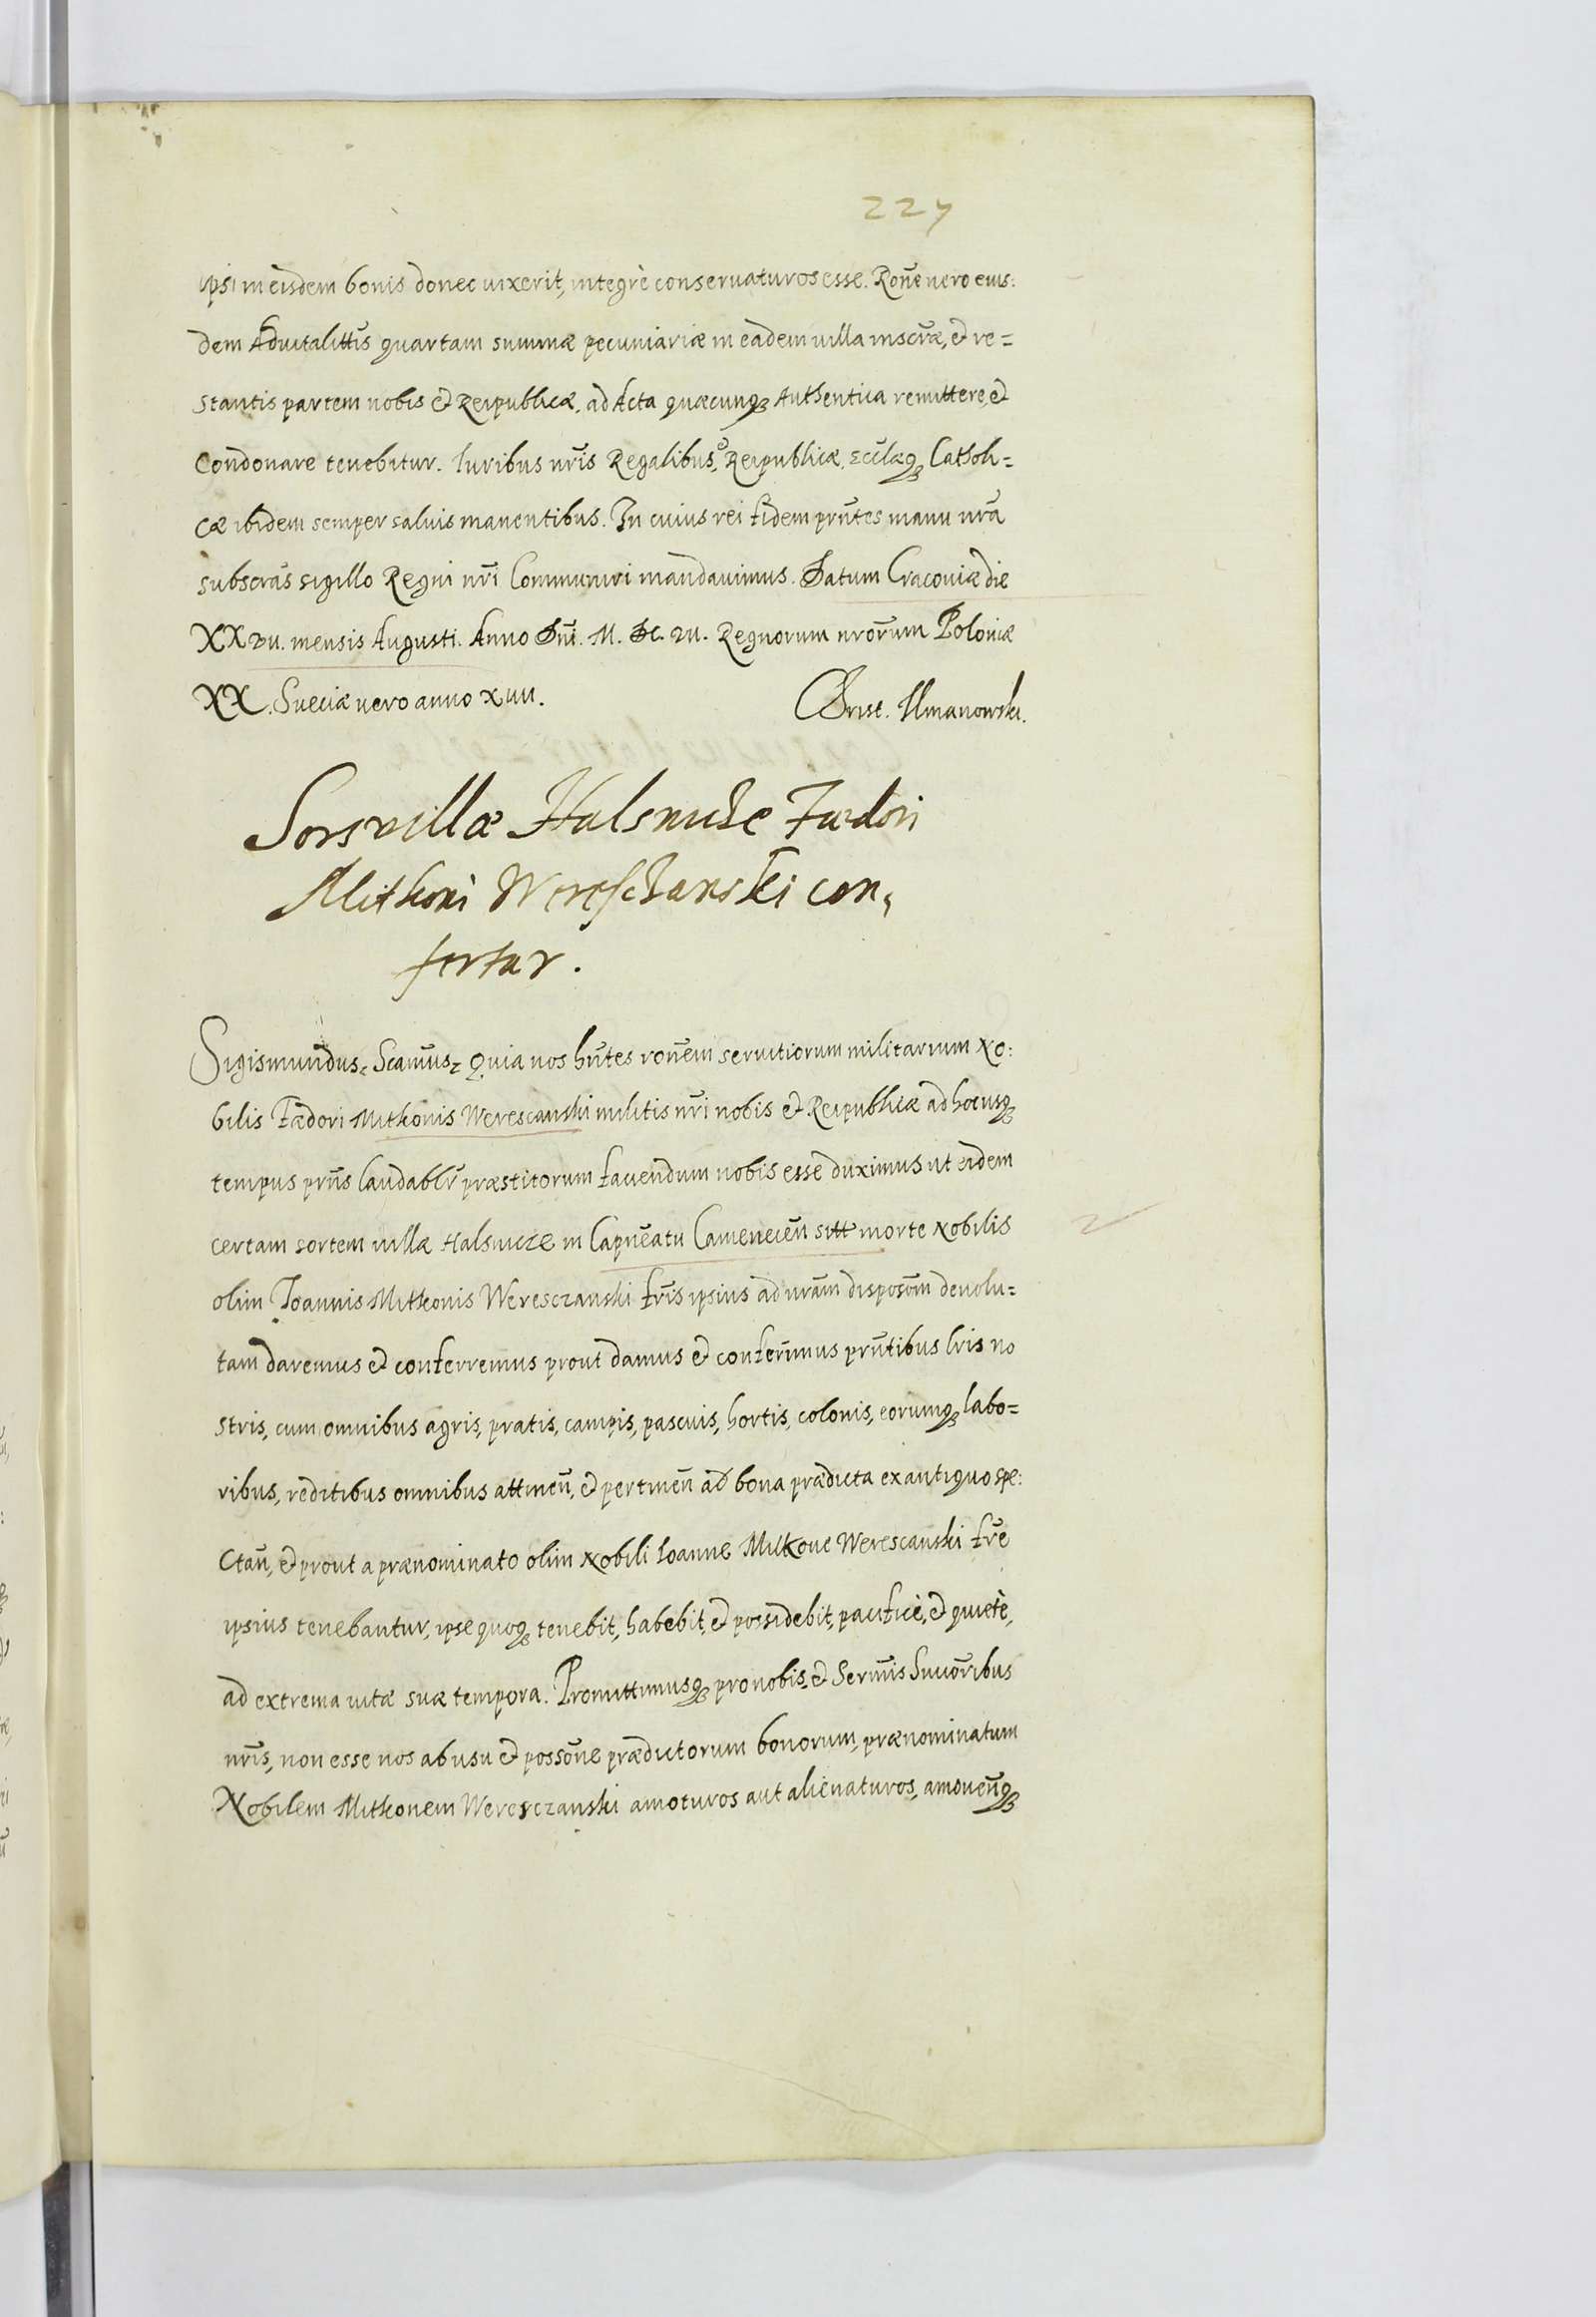 227
ipsi in eisdem bonis donec vixerit, integrè conservaturos esse. Rone͂ vero eius:
dem Advitalittis͂ quartam summæ pecuniariæ in eadem villa inscræ͂, et re=
stantis partem nobis et Reipublicæ, ad Acta quæcunqꝫ Authentica remittere, et
Condonare tenebitur. Iuribus nr͂is Regalibus, et Reipublicæ, Eccl͂æqꝫ Catholi=
cæ ibidem semper salvis manentibus. In cuius rei fidem prn͂tes manu nr͂a
subscra͂s sigillo Regni nr͂i Communiri mandavimus. Datum Cracoviæ die
XXVII. mensis Augusti. Anno Dn͂i. M. DC. VII. Regnorum nror͂um Poloniæ
XX. Sueciæ vero anno XIIII.
Christ. Ilmanowski.
Sors villæ Halsniche Fædori
Mitkoni Wereschanski con,
fertur.
Sigismundus, Scimus͂, Quia nos hn͂tes rone͂m servitiorum militarium No:
bilis Fædori Mitkonis Werescanski militis nr͂i nobis et Reipublicæ ad hocusqꝫ
tempus prn͂s laudablr͂ præstitorum faciendum nobis esse duximus ut eidem
certam sortem villæ Halsnicze in Capne͂atu Camenecen͂ sitt morte Nobilis
olim Ioannis Mitkonis Weresczanski fr͂is ipsius ad nra͂m disposo͂m devolu=
tam daremus et conferremus prout damus et conferim͂us prn͂tibus lris no
stris, cum omnibus agris, pratis, campis, pascuis, hortis, colonis, eorumqꝫ labo=
ribus, reditibus omnibus attinen͂, et pertinen͂ ad bona prædicta ex antiquo spe:
ctan͂, et prout a prænominato olim Nobili Ioanne Mitkone Werescanski fr͂e
ipsius tenebantur, ipse quoqꝫ tenebit, habebit, et possidebit, pacificè, et quietè,
ad extrema vitæ suæ tempora. Promittimusqꝫ pro nobis, et Serm͂is Succor͂ibus
nr͂is, non esse nos ab usu et posso͂ne prædictorum bonorum, prænominatum
Nobilem Mitkonem Weresczanski amoturos aut alienaturos, amoven͂qꝫ